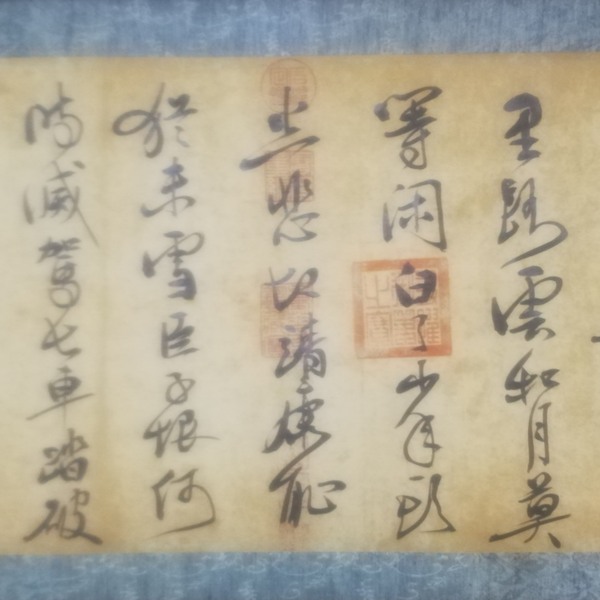 里路雲和月莫
等闲白了少年头
空悲切靖康耻
犹未雪臣子恨何
時滅驾长車踏破